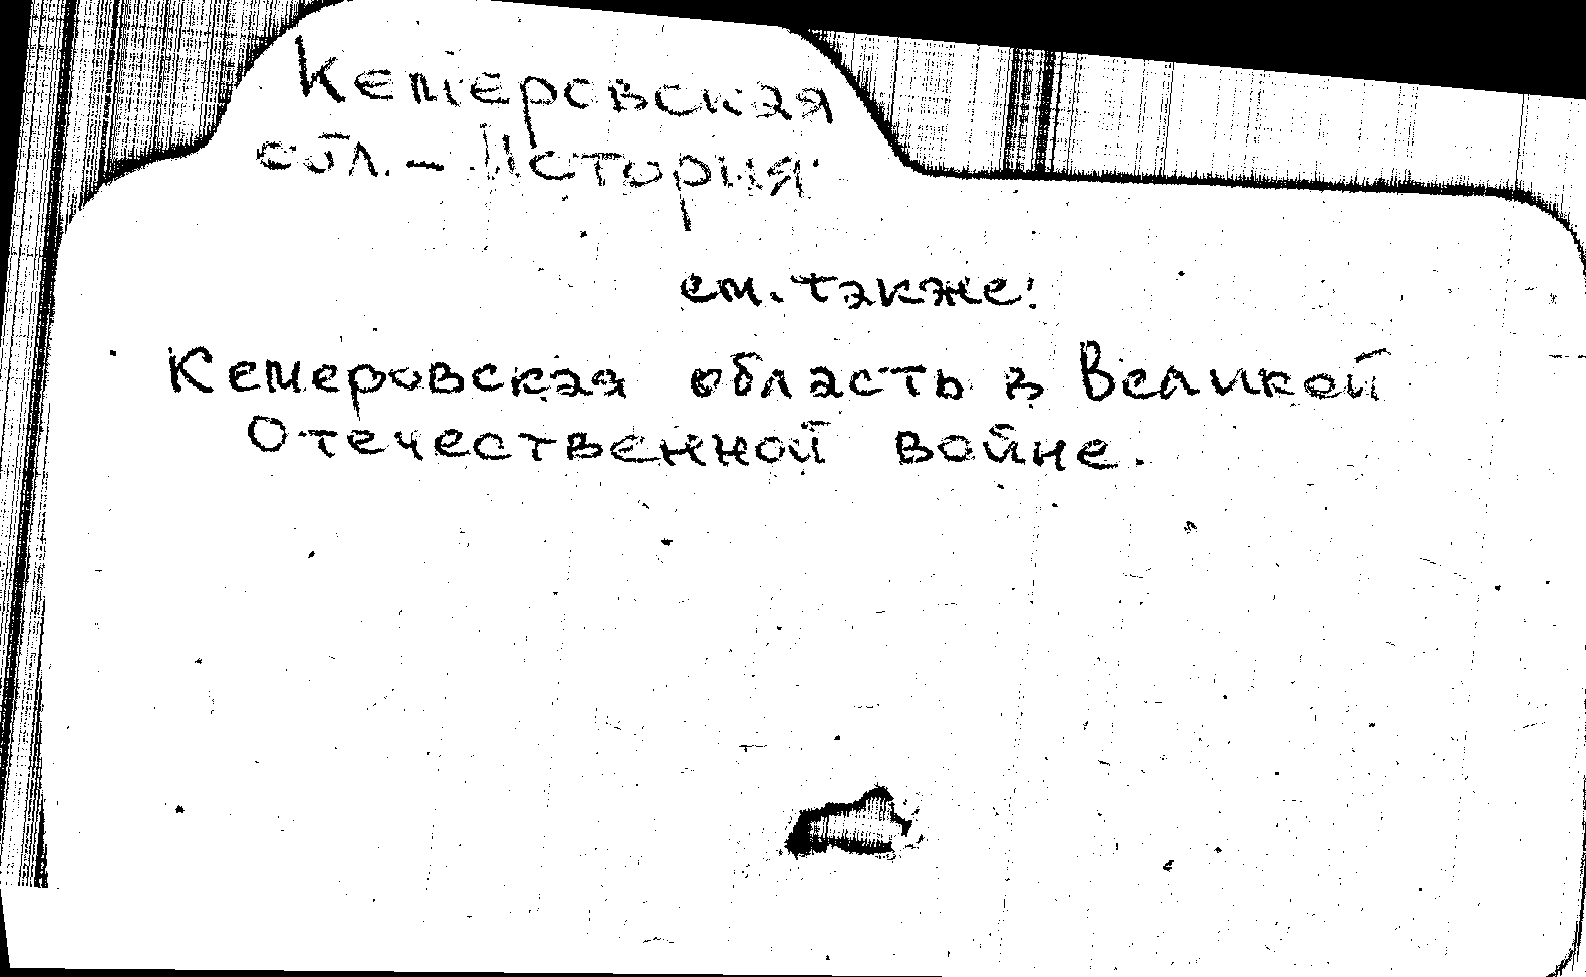 Кемеровская
обл. - История
см. также:
Кемеровская область в Великой
Отечественной войне.